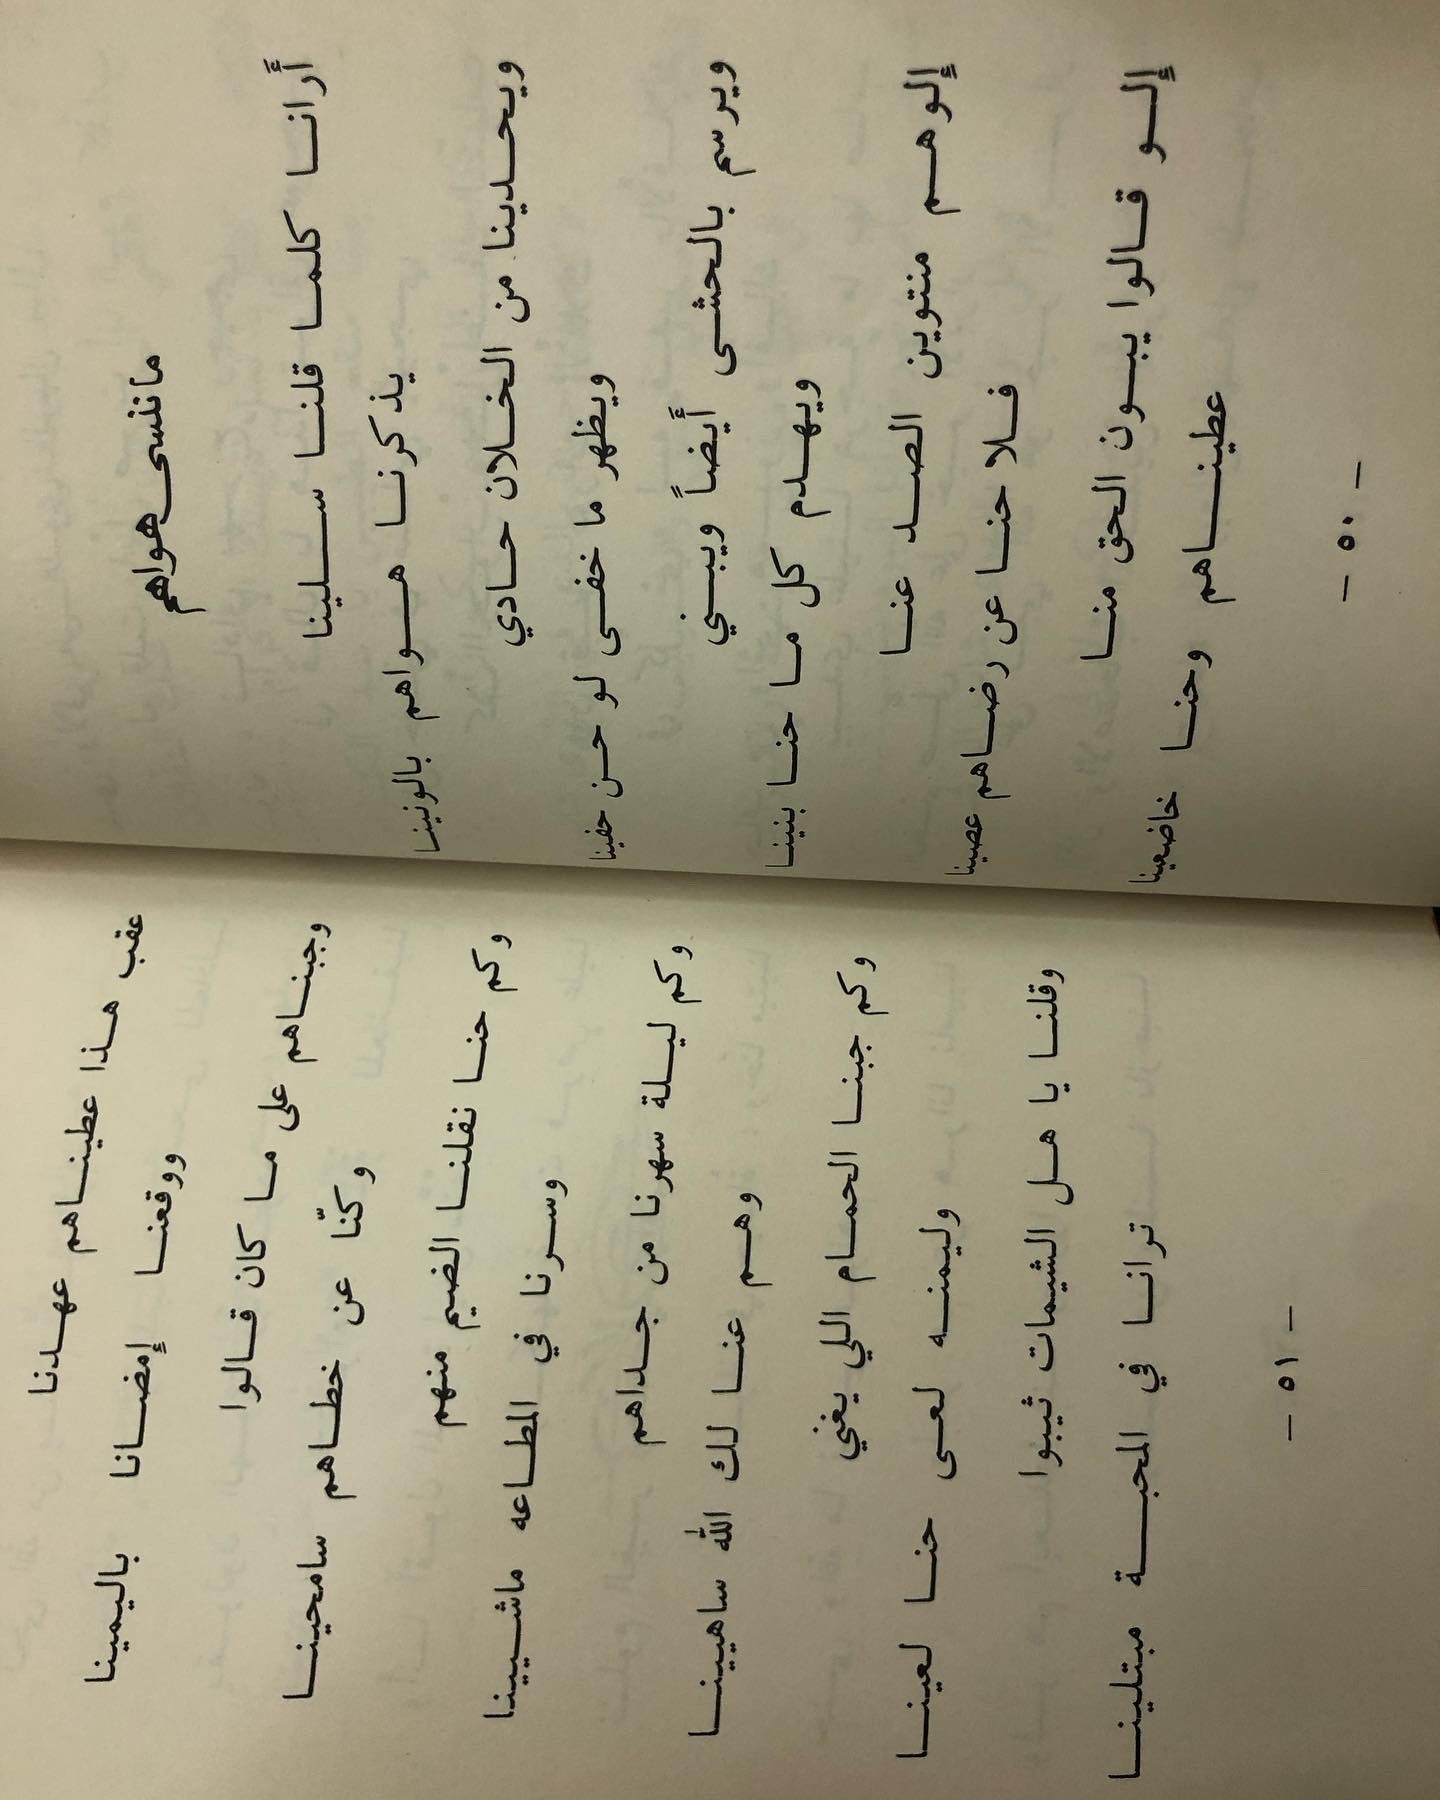 ماننسى هواهم
أرانا كلما قلنا سلينا
يذكرنا هواهم بالونينا
ويحدينا من الخلان حادي
ويظهر ما خفى لو حن خفينا
ويرسم بالحشى أيضاً ويبني
ويهدم كل ما حنا بنينا
إلو هم منتوين الصد عنا
فلا حنا عن رضاهم عصينا
إلو قالوا يبون الحق منا
عطيناهم وحنا خاضعينا
- ٥٠ -
عقب هذا عطيناهم عهدنا
ووقعنا إمضانا باليمينا
وجبناهم على ما كان قالوا
وكنّا عن خطاهم سامحينا
وكم حنا نقلنا الضيم منهم
وسرنا في المطاعه ماشيينا
وكم ليلة سهرنا من جداهم
وهم عنا لك الله ساهيينا
وكم جبنا الحمام اللي يغني
وليمنه لعى حنا لعينا
وقلنا يا هل الشيمات ثيبوا
ترانا في المحبة مبتلينا
- ٥١ -